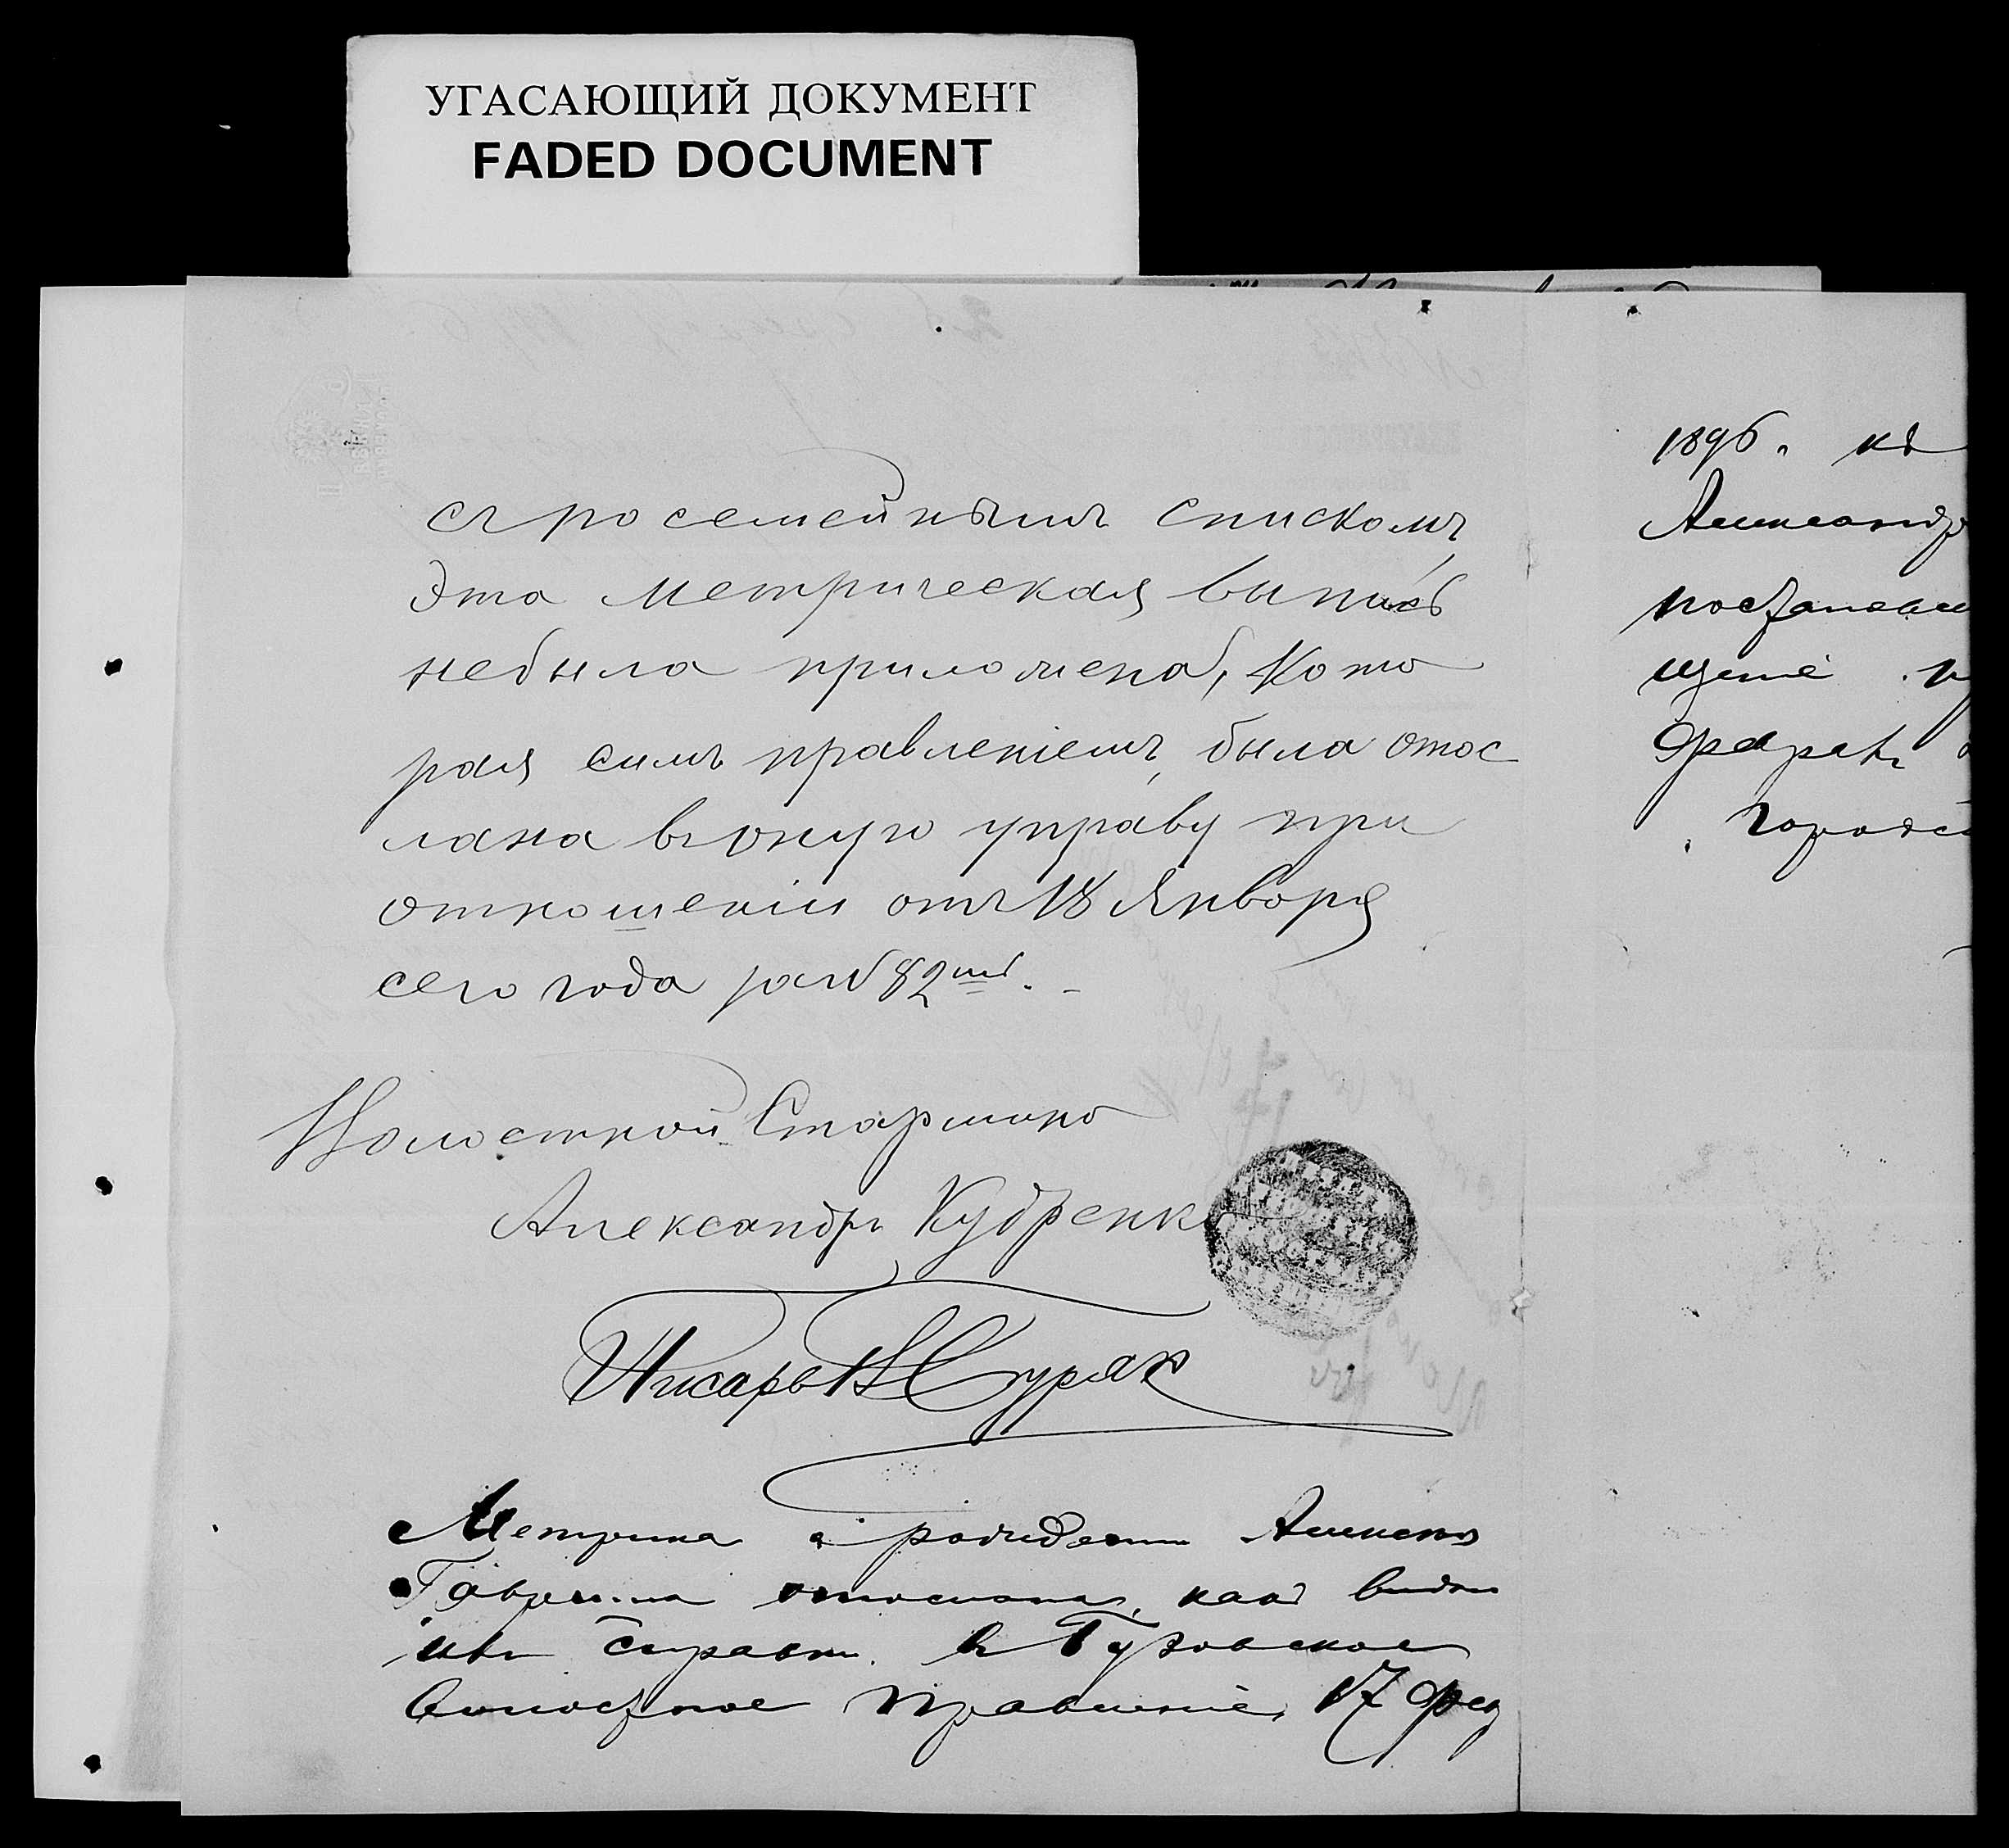 УГАСАЮЩИЙ ДОКУМЕНТ
FADED DOCUMENT
съ посемейнымъ спискомъ,
эта метрическая выпись
небыла приложена, кото
рая симъ правленіемъ, была отос
лана въ оную управу при
отношеніи отъ 18 Января
сего года за № 82мъ. -
Волостной Старшина
Александръ Кудренко
Писарь
Метрика о рождении
Гавриила отослана, какъ видно
изъ справки. въ
Волостное Правленіе, 17 Фев
1896. къ
Александр
постановл
щеніе
городс